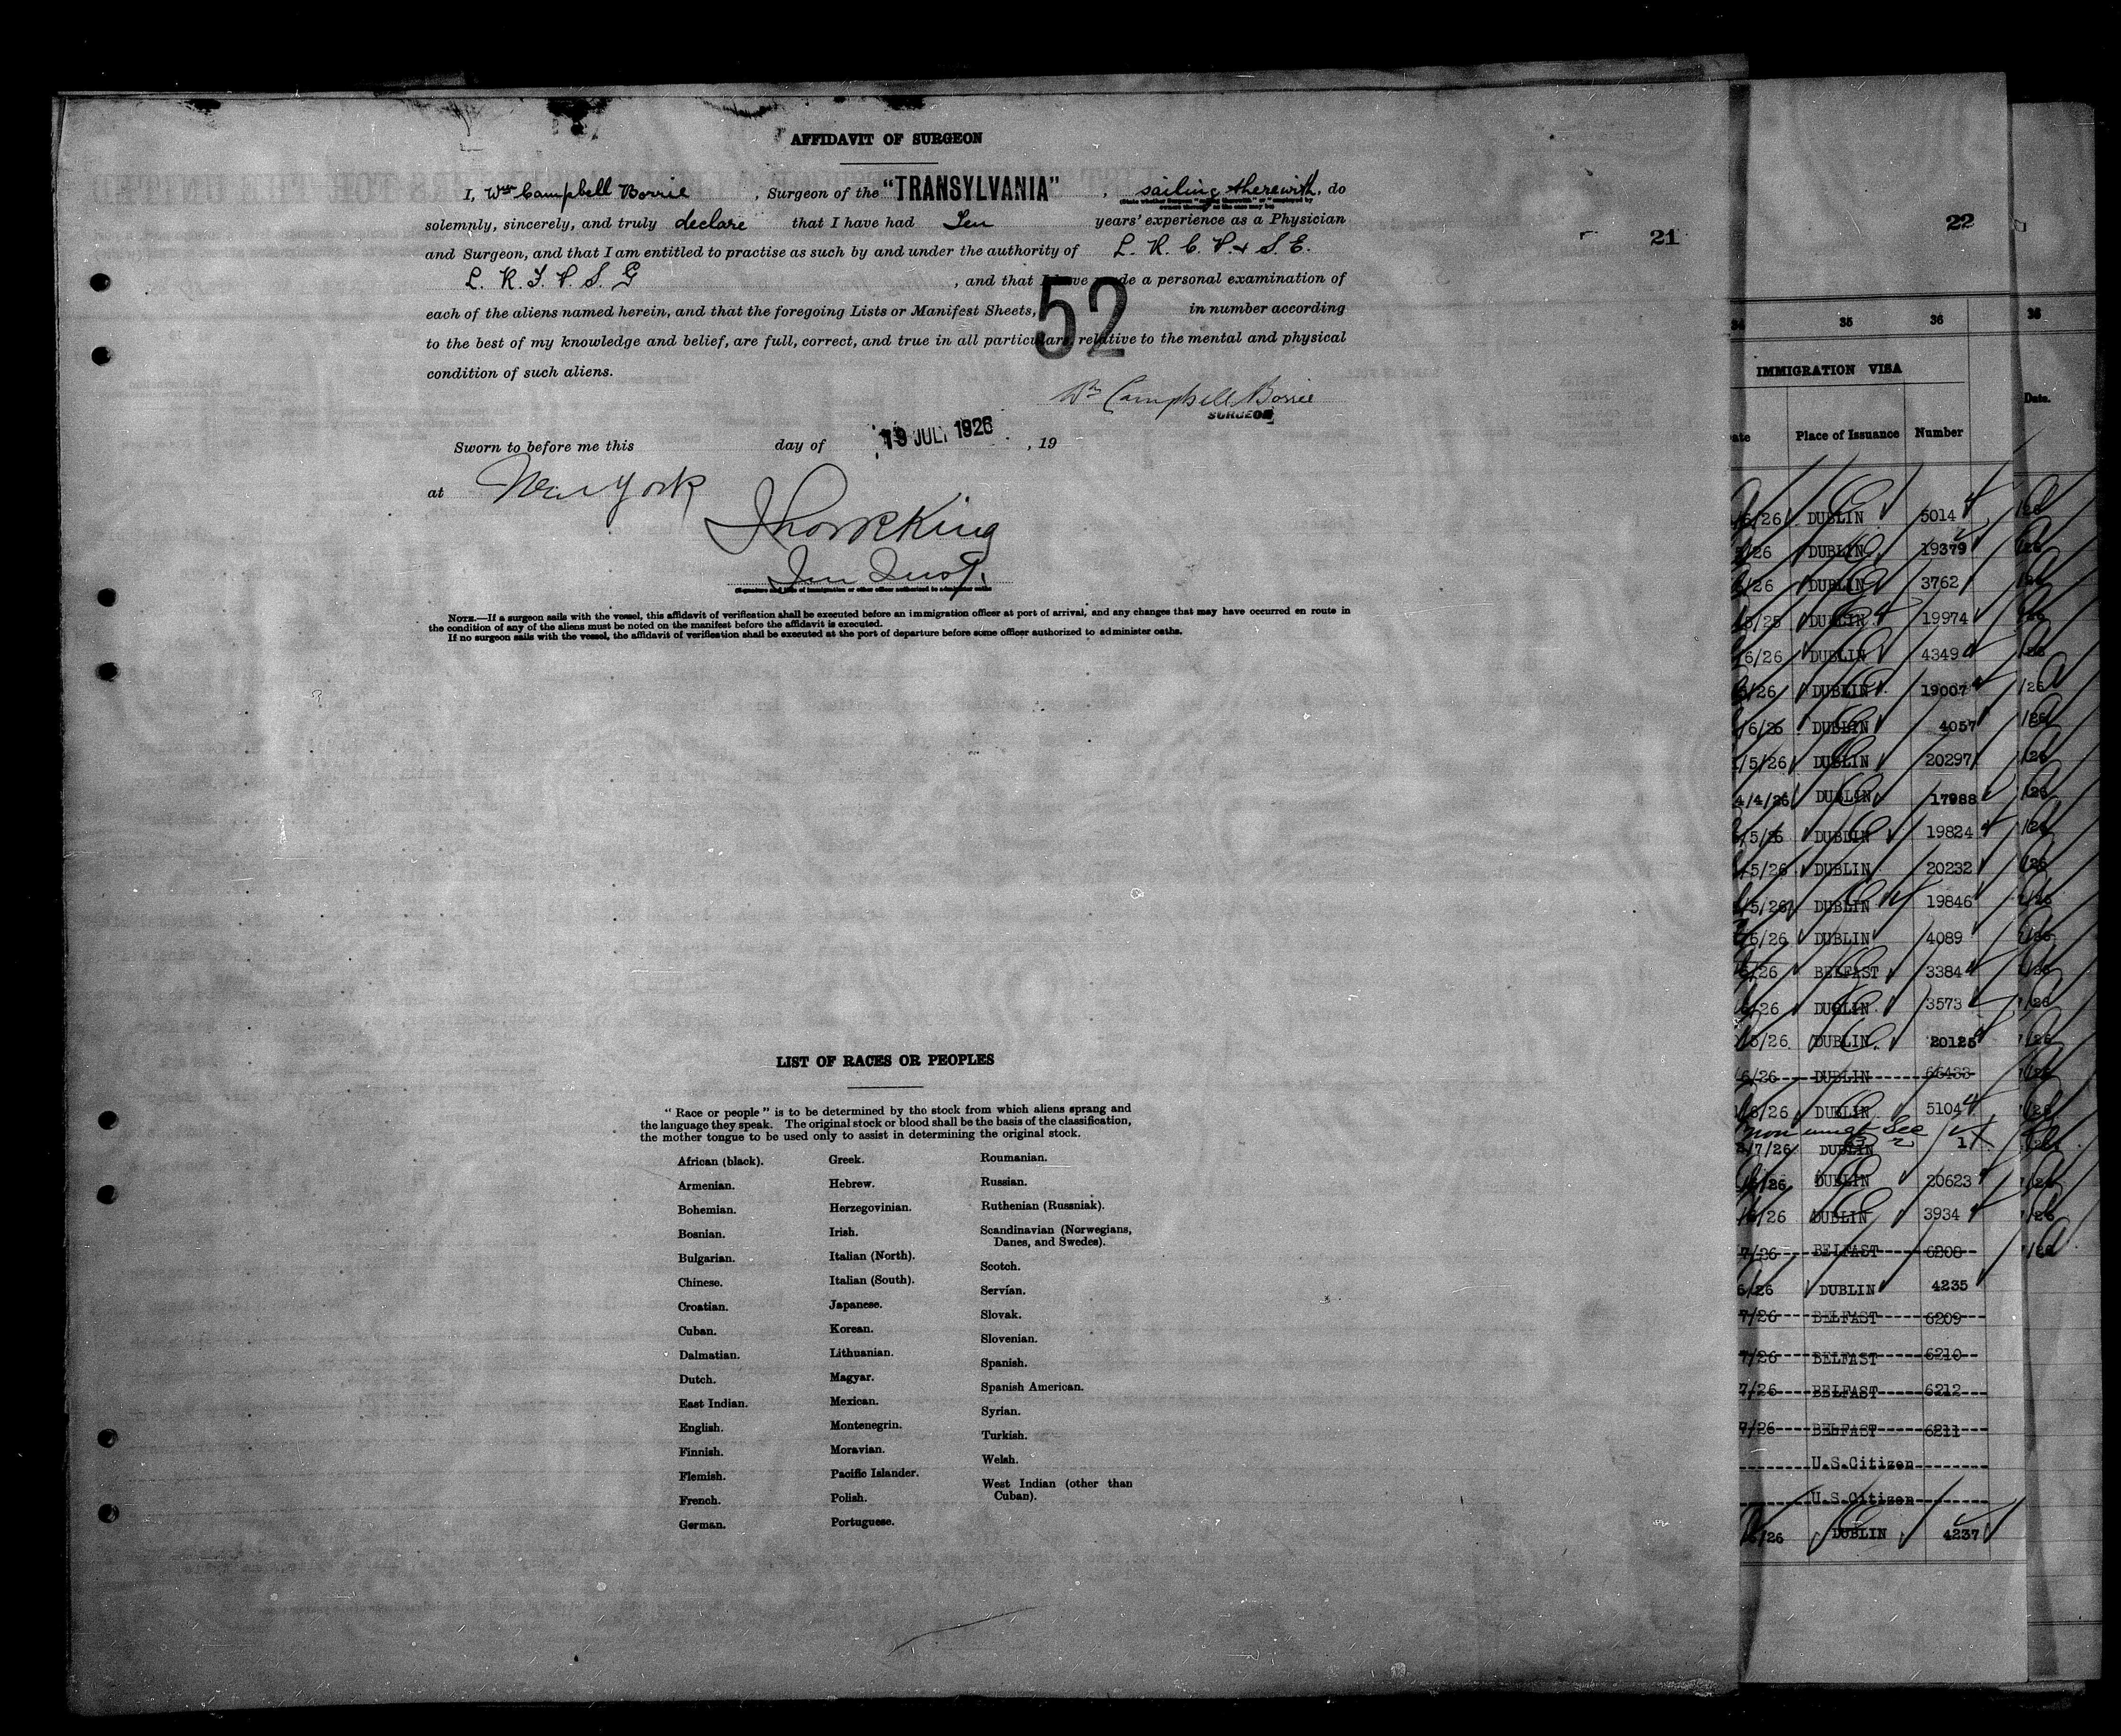 AFFIDAVIT OF SURGEON
I, Wm Campbell Borrie, Surgeon of the "TRANSYLVANIA", sailing therewith, do
(State whether Surgeon "sailing therewith" or "employed by
owners thereof," as the case may be)
solemnly, sincerely, and truly declare that I have had Ten years' experience as a Physician
and Surgeon, and that I am entitled to practise as such by and under the authority of L. R. C. P. & S. E.
L. R. F. P. S. G, and that I have made a personal examination of
each of the aliens named herein, and that the foregoing Lists or Manifest Sheets, 52 in number according
to the best of my knowledge and belief, are full, correct, and true in all particulars, relative to the mental and physical
condition of such aliens.
Wm Campbell Borrie
SURGEON
Sworn to before me this day of 19 JUL 1926, 19
at New York
King
(Signature and title of immigration or other officer authorized to administer oaths
NOTE.—If a surgeon sails with the vessel, this affidavit of verification shall be executed before an immigration officer at port of arrival, and any changes that may have occurred en route in
the condition of any of the aliens must be noted on the manifest before the affidavit is executed.
If no surgeon sails with the vessel, the affidavit of verification shall be executed at the port of departure before some officer authorized to administer oaths.
LIST OF RACES OR PEOPLES
"Race or people" is to be determined by the stock from which aliens sprang and
the language they speak. The original stock or blood shall be the basis of the classification,
the mother tongue to be used only to assist in determining the original stock.
African (black).
Armenian.
Bohemian.
Bosnian.
Bulgarian.
Chinese.
Croatian.
Cuban.
Dalmatian.
Dutch.
East Indian.
English.
Finnish.
Flemish.
French.
German.
Greek.
Hebrew.
Herzegovinian.
Irish.
Italian (North).
Italian (South).
Japanese.
Korean.
Lithuanian.
Magyar.
Mexican.
Montenegrin.
Moravian.
Pacific Islander.
Polish.
Portuguese.
Roumanian.
Russian.
Ruthenian (Russniak).
Scandinavian (Norwegians,
Danes, and Swedes).
Scotch.
Servian.
Slovak.
Slovenian.
Spanish.
Spanish American.
Syrian.
Turkish.
Welsh.
West Indian (other than
Cuban).
21
22
35 36
IMMIGRATION VISA
Place of Issuance Number
Date.
6/26 DUBLIN 5014
/26 DUBLIN 19379
/26 DUBLIN 3762
5/25 DUBLIN 19974
6/26 DUBLIN 4349
/26 DUBLIN 19007
/6/26 DUBLIN 4057
/5/26 DUBLIN 20297
4/4/26 DUBLIN 17988
/5/26 DUBLIN 19824
/5/26 DUBLIN 20232
/5/26 DUBLIN 19846
/26 DUBLIN 4089
/26 BELFAST 3384
/26 DUBLIN 3573
/5/26 DUBLIN 20125
6/26 DUBLIN 66433
/26 DUBLIN 5104
non
/7/26 DUBLIN 1
/26 DUBLIN 20623
/26 DUBLIN 3934
7/26 BELFAST 6208
6/26 DUBLIN 4235
7/26 BELFAST 6209
7/26 BELFAST 6210
7/26 BELFAST 6212
7/26 BELFAST 6211
U.S.Citizen
U.S.Citizen
/26 DUBLIN 4237